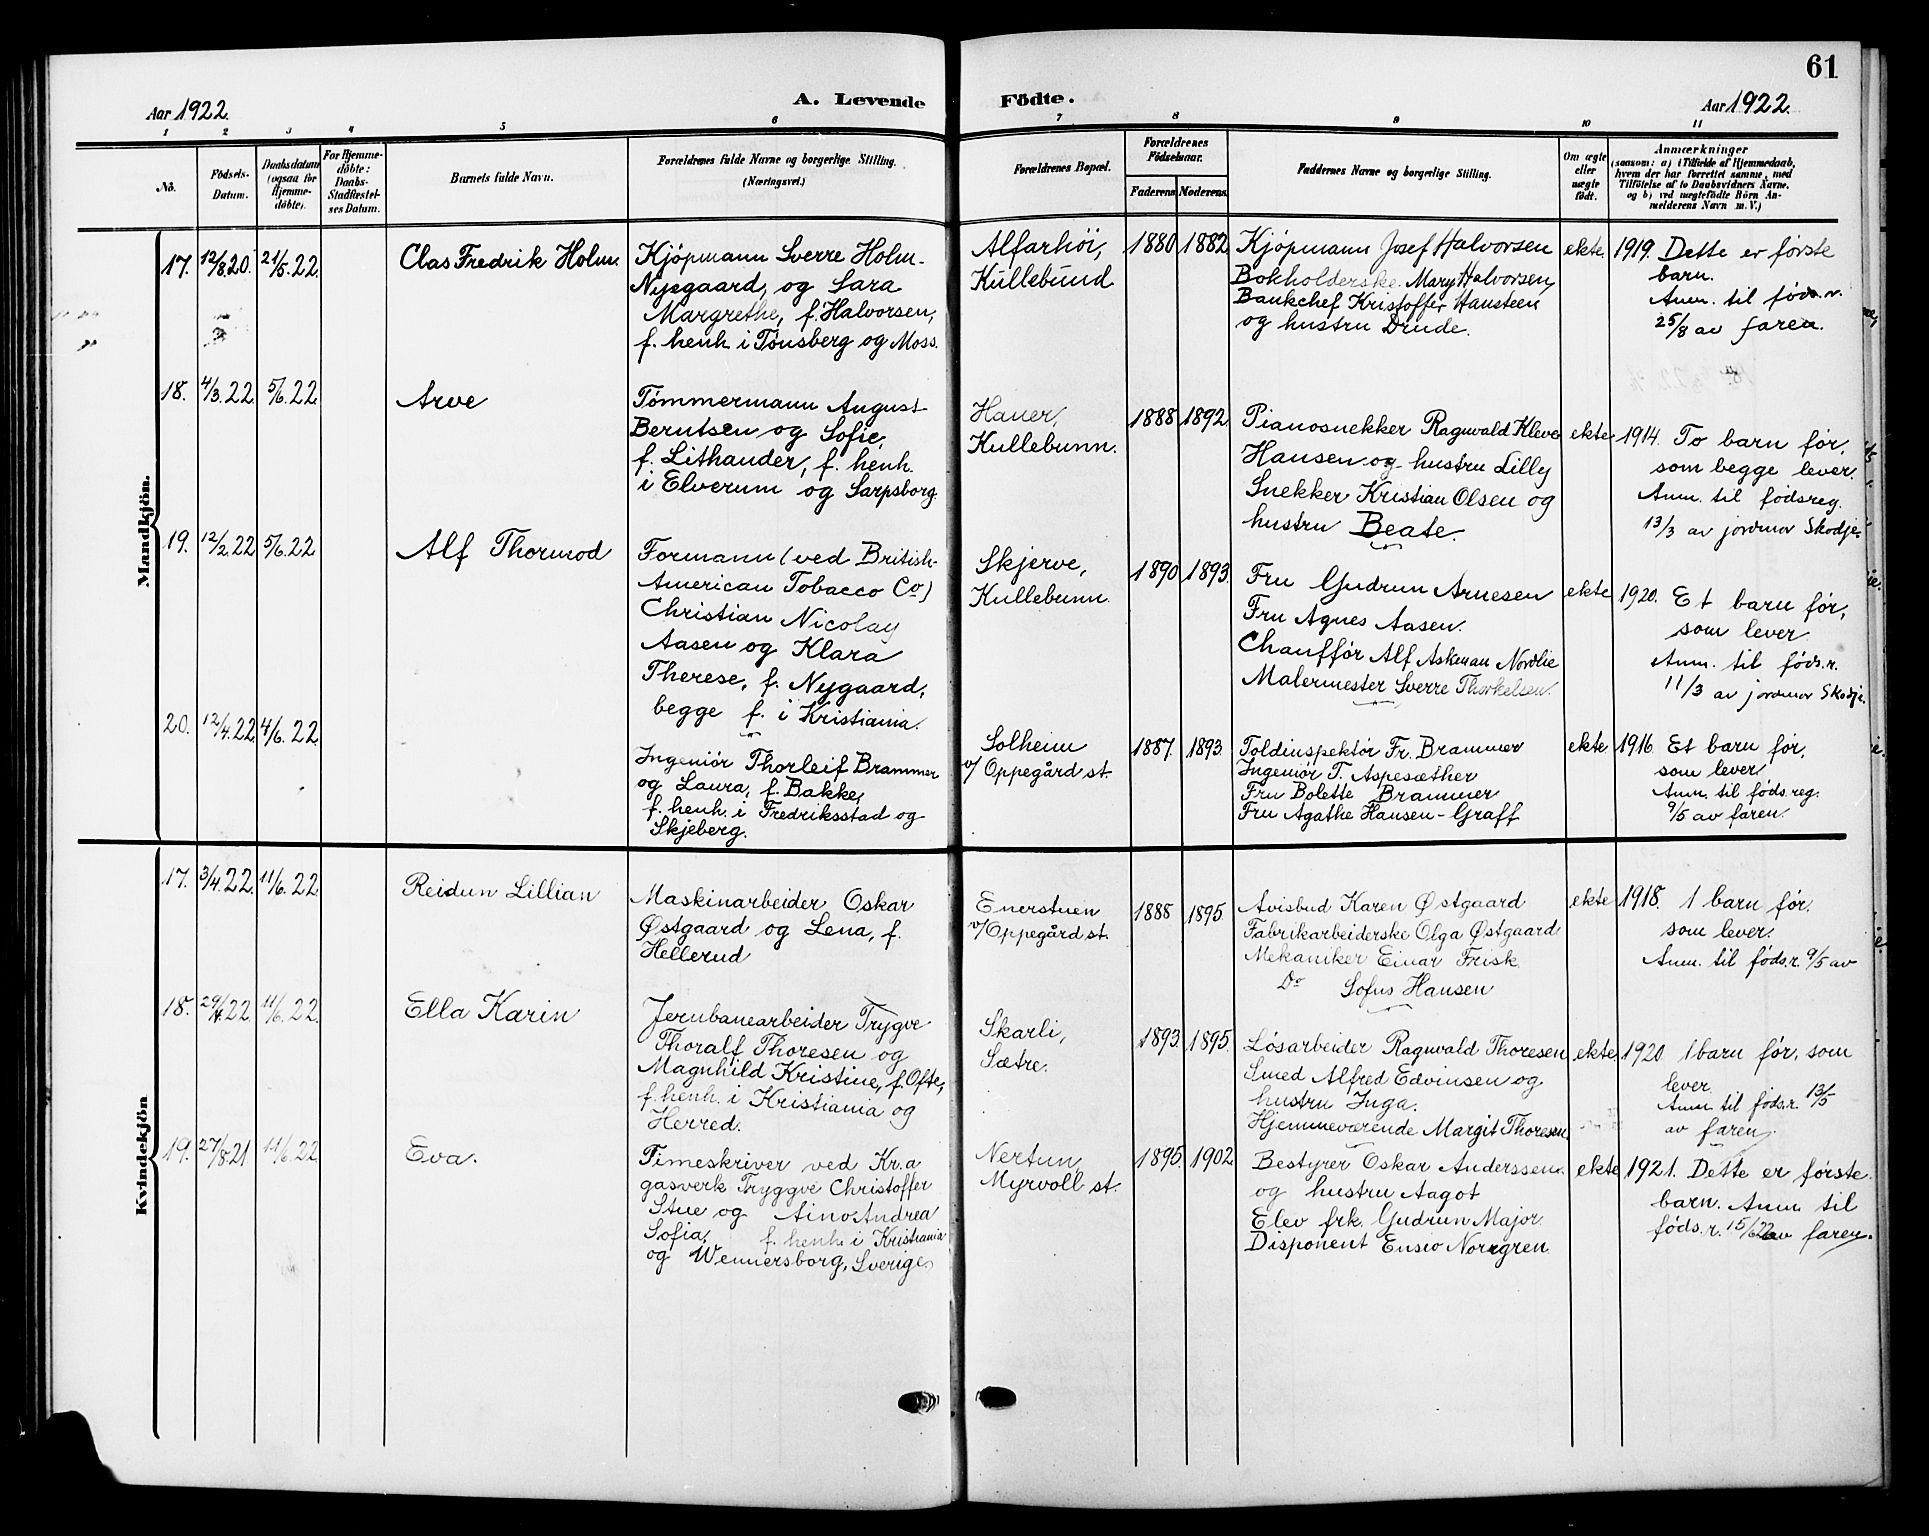 61
Aar 1922.
A. Levende
Födte.
Aar 1922.
1 2 3 4 5 6 7 8 9 10 11
No.
Födsels-
Datum.
Daabsdatum
(ogsaa for
Hjemme-
döbte).
For Hjemme-
döbte:
Daabs-
Stadfæstel-
ses Datum.
Barnets fulde Navn.
Forældrenes fulde Navne og borgerlige Stilling.
(Næringsvei.)
Forældrenes Bopæl.
Forældrenes
Födselsaar.
Faderens.
Moderens.
Faddernes Navne og borgerlige Stilling.
Om ægte
eller
uægte
födt.
Anmærkninger
(saasom: a) i Tilfælde af Hjemmedaab,
hvem der har forrettet samme, med
Tilföielse af to Daabsvidners Navne.
og b) ved uægtefödte Börn An-
melderens Navn m. V.)
Mandkjön.
17. 12/8.20. 21/5.22. Clas Fredrik Holm.
Kjøpmann Sverre Holm-
Nyegaard, og Sara
Margrethe, f. Halvorsen,
f. henh. i Tønsberg og Moss.
Alfarhöi,
Kullebund
1880 1882.
Kjöpmann Josef Halvorsen
Bokholderske Mary Halvorsen,
Bankchef Kristoffer Hansteen
og hustru Drude.
ekte.
1919. Dette er første
barn.
Anm. til föds.r.
25/8 av faren.
18. 4/3.22. 5/6.22. Arve
Tømmermann August
Berntsen og Sofie,
f. Lithander, f. henh.
i Elverum og Sarpsborg.
Hauer,
Kullebunn.
1888 1892.
Pianosnekker Ragnvald Kleve
Hansen og hustru Lilly
Snekker Kristian Olsen og
hustru Beate.
ekte
1914. To barn før,
som begge lever.
Anm. til fødsreg.
13/3 av jordmor Skodje.
19. 12/2.22 5/6.22 Alf Thormod
Formann (ved British-
American Tobacco Co)
Christian Nicolay
Aasen og Klara
Therese, f. Nygaard,
begge f. i Kristiania.
Skjerve,
Kullebunn.
1890 1893.
Fru Gudrun Arnesen
Fru Agnes Aasen.
Chauffør Alf Askman Nordlie
Malermester Sverre Thorkelsen.
ekte
1920. Et barn før,
som lever
Anm. til føds.r.
11/3 av jordmor Skodje.
20. 12/4.22. 4/6.22.
Ingeniör Thorleif Brammer
og Laura, f. Bakke,
f. henh. i Fredriksstad og
Skjeberg.
Solheim
v/ Oppegård st.
1887. 1893
Toldinspektør Fr. Brammer
Ingeniør T. Aspesæther
Fru Bolette Brammer
Fru Agathe Hansen-Graff
ekte
1916. Et barn før,
som lever
Anm. til føds.reg.
9/5 av faren.
Kvindekjön
17. 3/4.22. 11/6.22. Reidun Lillian
Maskinarbeider Oskar
Østgaard og Lena, f.
Hellerud
Enerstuen
v/Oppegård st.
1888 1895
Avisbud Karen Østgaard
Fabrikarbeiderske Olga Østgaard
Mekaniker Einar Frisk.
Do Sofus Hansen
ekte
1918. 1 barn før.
som lever.
Anm. til føds.r. 9/5 av
18. 29/4.22. 11/6.22. Ella Karin
Jernbanearbeider Trygve
Thoralf Thoresen og
Magnhild Kristine, f. Ofte,
f. henh. i Kristiania og
Herred.
Skarli,
Sætre.
1893. 1895.
Løsarbeider Ragnvald Thoresen
Smed Alfred Edvinsen og
hustru Inga.
Hjemmeværende Margit Thoresen
ekte
1920. 1 barn før, som
lever
Anm. til føds.r. 13/5
av faren.
19. 27/8.21 11/6.22 Eva.
Timeskriver ved Kr.a
gasverk Tryggve Christoffer
Stue og Aino Andrea
Sofia, f. henh. i Kristiania
og Wennersborg, Sverige.
Nertun,
Myrvoll st.
1895. 1902
Bestyrer Oskar Anderssen.
og hustru Aagot
Elev frk. Gudrun Major.
Disponent Ensio Norrgren.
ekte
1921. Dette er første
barn. Anm. til
føds.r. 15/6 22 av faren.